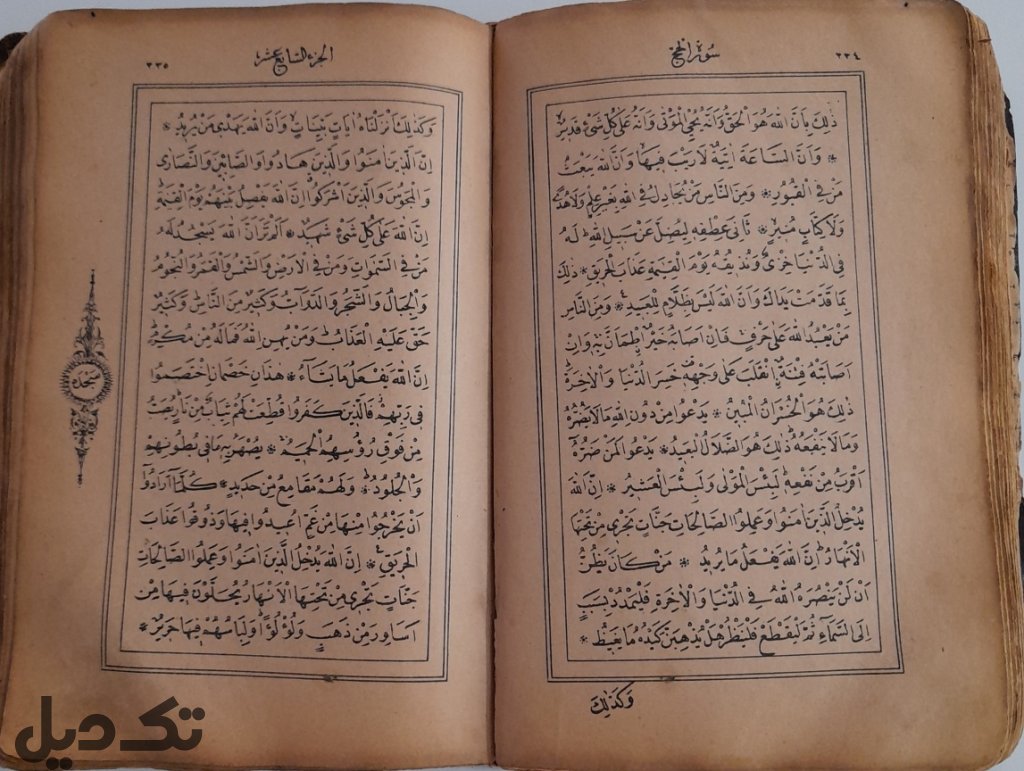 ٣٣٤
سورة الحج
ذٰلِكَ بِاَنَّ اللهَ هُوَ الْحَقُّ وَاَنَّهُ يُحْيِ الْمَوْتٰى وَاَنَّهُ عَلٰى كُلِّ شَىْءٍ قَدِيرٌ
* وَاَنَّ السَّاعَةَ اٰتِيَةٌ لَارَيْبَ فِيهَا وَاَنَّ اللهَ يَبْعَثُ
مَنْ فِى الْقُبُورِ * وَمِنَ النَّاسِ مَنْ يُجَادِلُ فِى اللهِ بِغَيْرِ عِلْمٍ وَلَاهُدًى
وَلَاكِتَابٍ مُنِيرٍ * ثَانِىَ عِطْفِهِ لِيُضِلَّ عَنْ سَبِيلِ اللهِ لَهُ
فِى الدُّنْيَا خِزْىٌ وَنُذِيقُهُ يَوْمَ الْقِيٰمَةِ عَذَابَ الْحَرِيقِ * ذٰلِكَ
بِمَا قَدَّمَتْ يَدَاكَ وَاَنَّ اللهَ لَيْسَ بِظَلَّامٍ لِلْعَبِيدِ * وَمِنَ النَّاسِ
مَنْ يَعْبُدُ اللهَ عَلٰى حَرْفٍ فَاِنْ اَصَابَهُ خَيْرٌ اِطْمَاَنَّ بِهِ وَاِنْ
اَصَابَتْهُ فِتْنَةٌ اِنْقَلَبَ عَلٰى وَجْهِهِ خَسِرَ الدُّنْيَا وَالْاٰخِرَةَ
ذٰلِكَ هُوَ الْخُسْرَانُ الْمُبِينُ * يَدْعُوا مِنْ دُونِ اللهِ مَالَا يَضُرُّهُ
وَمَا لَا يَنْفَعُهُ ذٰلِكَ هُوَ الضَّلَالُ الْبَعِيدُ * يَدْعُوا لَمَنْ ضَرُّهُ
اَقْرَبُ مِنْ نَفْعِهِ لَبِئْسَ الْمَوْلٰى وَلَبِئْسَ الْعَشِيرُ * اِنَّ اللهَ
يُدْخِلُ الَّذِينَ اٰمَنُوا وَعَمِلُوا الصَّالِحَاتِ جَنَّاتٍ تَجْرِى مِنْ تَحْتِهَا
الْاَنْهَارُ اِنَّ اللهَ يَفْعَلُ مَا يُرِيدُ * مَنْ كَانَ يَظُنُّ
اَنْ لَنْ يَنْصُرَهُ اللهُ فِى الدُّنْيَا وَالْاٰخِرَةِ فَلْيَمْدُدْ بِسَبَبٍ
اِلَى السَّمَاءِ ثُمَّ لْيَقْطَعْ فَلْيَنْظُرْ هَلْ يُذْهِبَنَّ كَيْدُهُ مَا يَغِيظُ *
وَكَذٰلِكَ
الجزء السابع عشر
٣٣٥
وَكَذٰلِكَ اَنْزَلْنَاهُ اٰيَاتٍ بَيِّنَاتٍ وَاَنَّ اللهَ يَهْدِى مَنْ يُرِيدُ *
اِنَّ الَّذِينَ اٰمَنُوا وَالَّذِينَ هَادُوا وَالصَّابِئِينَ وَالنَّصَارٰى
وَالْمَجُوسَ وَالَّذِينَ اَشْرَكُوا اِنَّ اللهَ يَفْصِلُ بَيْنَهُمْ يَوْمَ الْقِيٰمَةِ
اِنَّ اللهَ عَلٰى كُلِّ شَىْءٍ شَهِيدٌ * اَلَمْ تَرَ اَنَّ اللهَ يَسْجُدُ لَهُ
مَنْ فِى السَّمٰوَاتِ وَمَنْ فِى الْاَرْضِ وَالشَّمْسُ وَالْقَمَرُ وَالنُّجُومُ
وَالْجِبَالُ وَالشَّجَرُ وَالدَّوَابُّ وَكَثِيرٌ مِنَ النَّاسِ وَكَثِيرٌ
حَقَّ عَلَيْهِ الْعَذَابُ وَمَنْ يُهِنِ اللهُ فَمَا لَهُ مِنْ مُكْرِمٍ
اِنَّ اللهَ يَفْعَلُ مَا يَشَاءُ * هٰذَانِ خَصْمَانِ اخْتَصَمُوا
فِى رَبِّهِمْ فَالَّذِينَ كَفَرُوا قُطِّعَتْ لَهُمْ ثِيَابٌ مِنْ نَارٍ يُصَبُّ
مِنْ فَوْقِ رُؤُسِهِمُ الْحَمِيمُ * يُصْهَرُ بِهِ مَا فِى بُطُونِهِمْ
وَالْجُلُودُ * وَلَهُمْ مَقَامِعُ مِنْ حَدِيدٍ * كُلَّمَا اَرَادُوا
اَنْ يَخْرُجُوا مِنْهَا مِنْ غَمٍّ اُعِيدُوا فِيهَا وَذُوقُوا عَذَابَ
الْحَرِيقِ * اِنَّ اللهَ يُدْخِلُ الَّذِينَ اٰمَنُوا وَعَمِلُوا الصَّالِحَاتِ
جَنَّاتٍ تَجْرِى مِنْ تَحْتِهَا الْاَنْهَارُ يُحَلَّوْنَ فِيهَا مِنْ
اَسَاوِرَ مِنْ ذَهَبٍ وَلُؤْلُؤًا وَلِبَاسُهُمْ فِيهَا حَرِيرٌ *
سجده
تک دیل